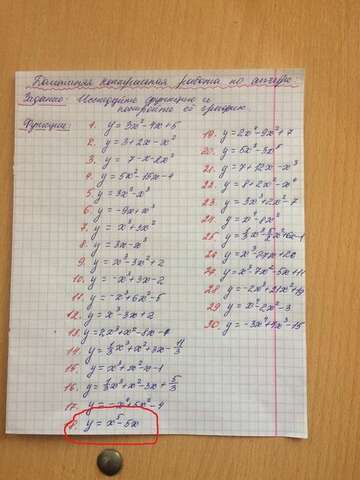 Домашняя контрольная работа по алгебре
Задание: Исследуйте функцию и
постройте её график.
Функции:
1. y = 3x² - 4x + 5
2. y = 3 + 2x - x²
3. y = 7 - x - 2x²
4. y = 5x² - 15x - 4
5. y = 3x² - x³
6. y = -9x + x³
7. y = x³ + 3x²
8. y = 3x - x³
9. y = x³ - 3x² + 2
10. y = -x³ + 3x - 2
11. y = -x³ + 6x² - 5
12. y = x³ - 3x + 2
14. y = 1/3 x³ + x² + 3x - 11/3
15. y = x³ + x² - x - 1
16. y = 1/3 x³ + x² - 3x + 5/3
17. y = -x⁴ + 5x² - 4
18. y = x⁵ - 5x
19. y = 2x⁴ - 9x² + 7
20. y = 5x³ - 3x⁵
21. y = 7 + 12x - x³
22. y = 8 + 2x² - x⁴
23. y = x³ + 3x² - 7
24. y = x⁴ - 8x²
27. y = x³ - 7x² - 5x + 11
29. y = x⁴ - 2x² - 3